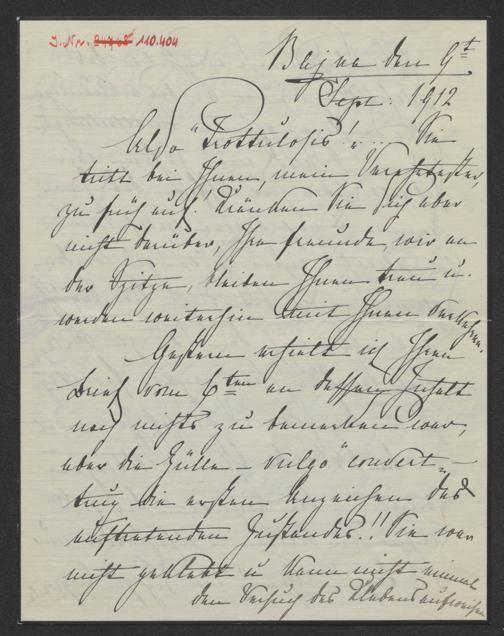 J. Nr. 110.404
den 9t
Sept: 1912
Also "Trottulosis!" ... Sie
tritt bei Ihnen, mein Verehrtester,
zu früh auf! Kränken Sie sich aber
nicht darüber, Ihre Freunde, wir an
der Spitze, bleiben Ihnen treu u.
werden weiterhin mit Ihnen verkehren.
Gestern erhielt ich Ihren
Brief vom 6ten an dessen Inhalt
noch nichts zu bemerken war,
aber die Hülle – vulgo "Couvert" –
trug die ersten Anzeichen des
auftretenden Zustandes!! Sie war
nicht geklebt u kann nicht einmal
den Versuch des Klebens aufweisen